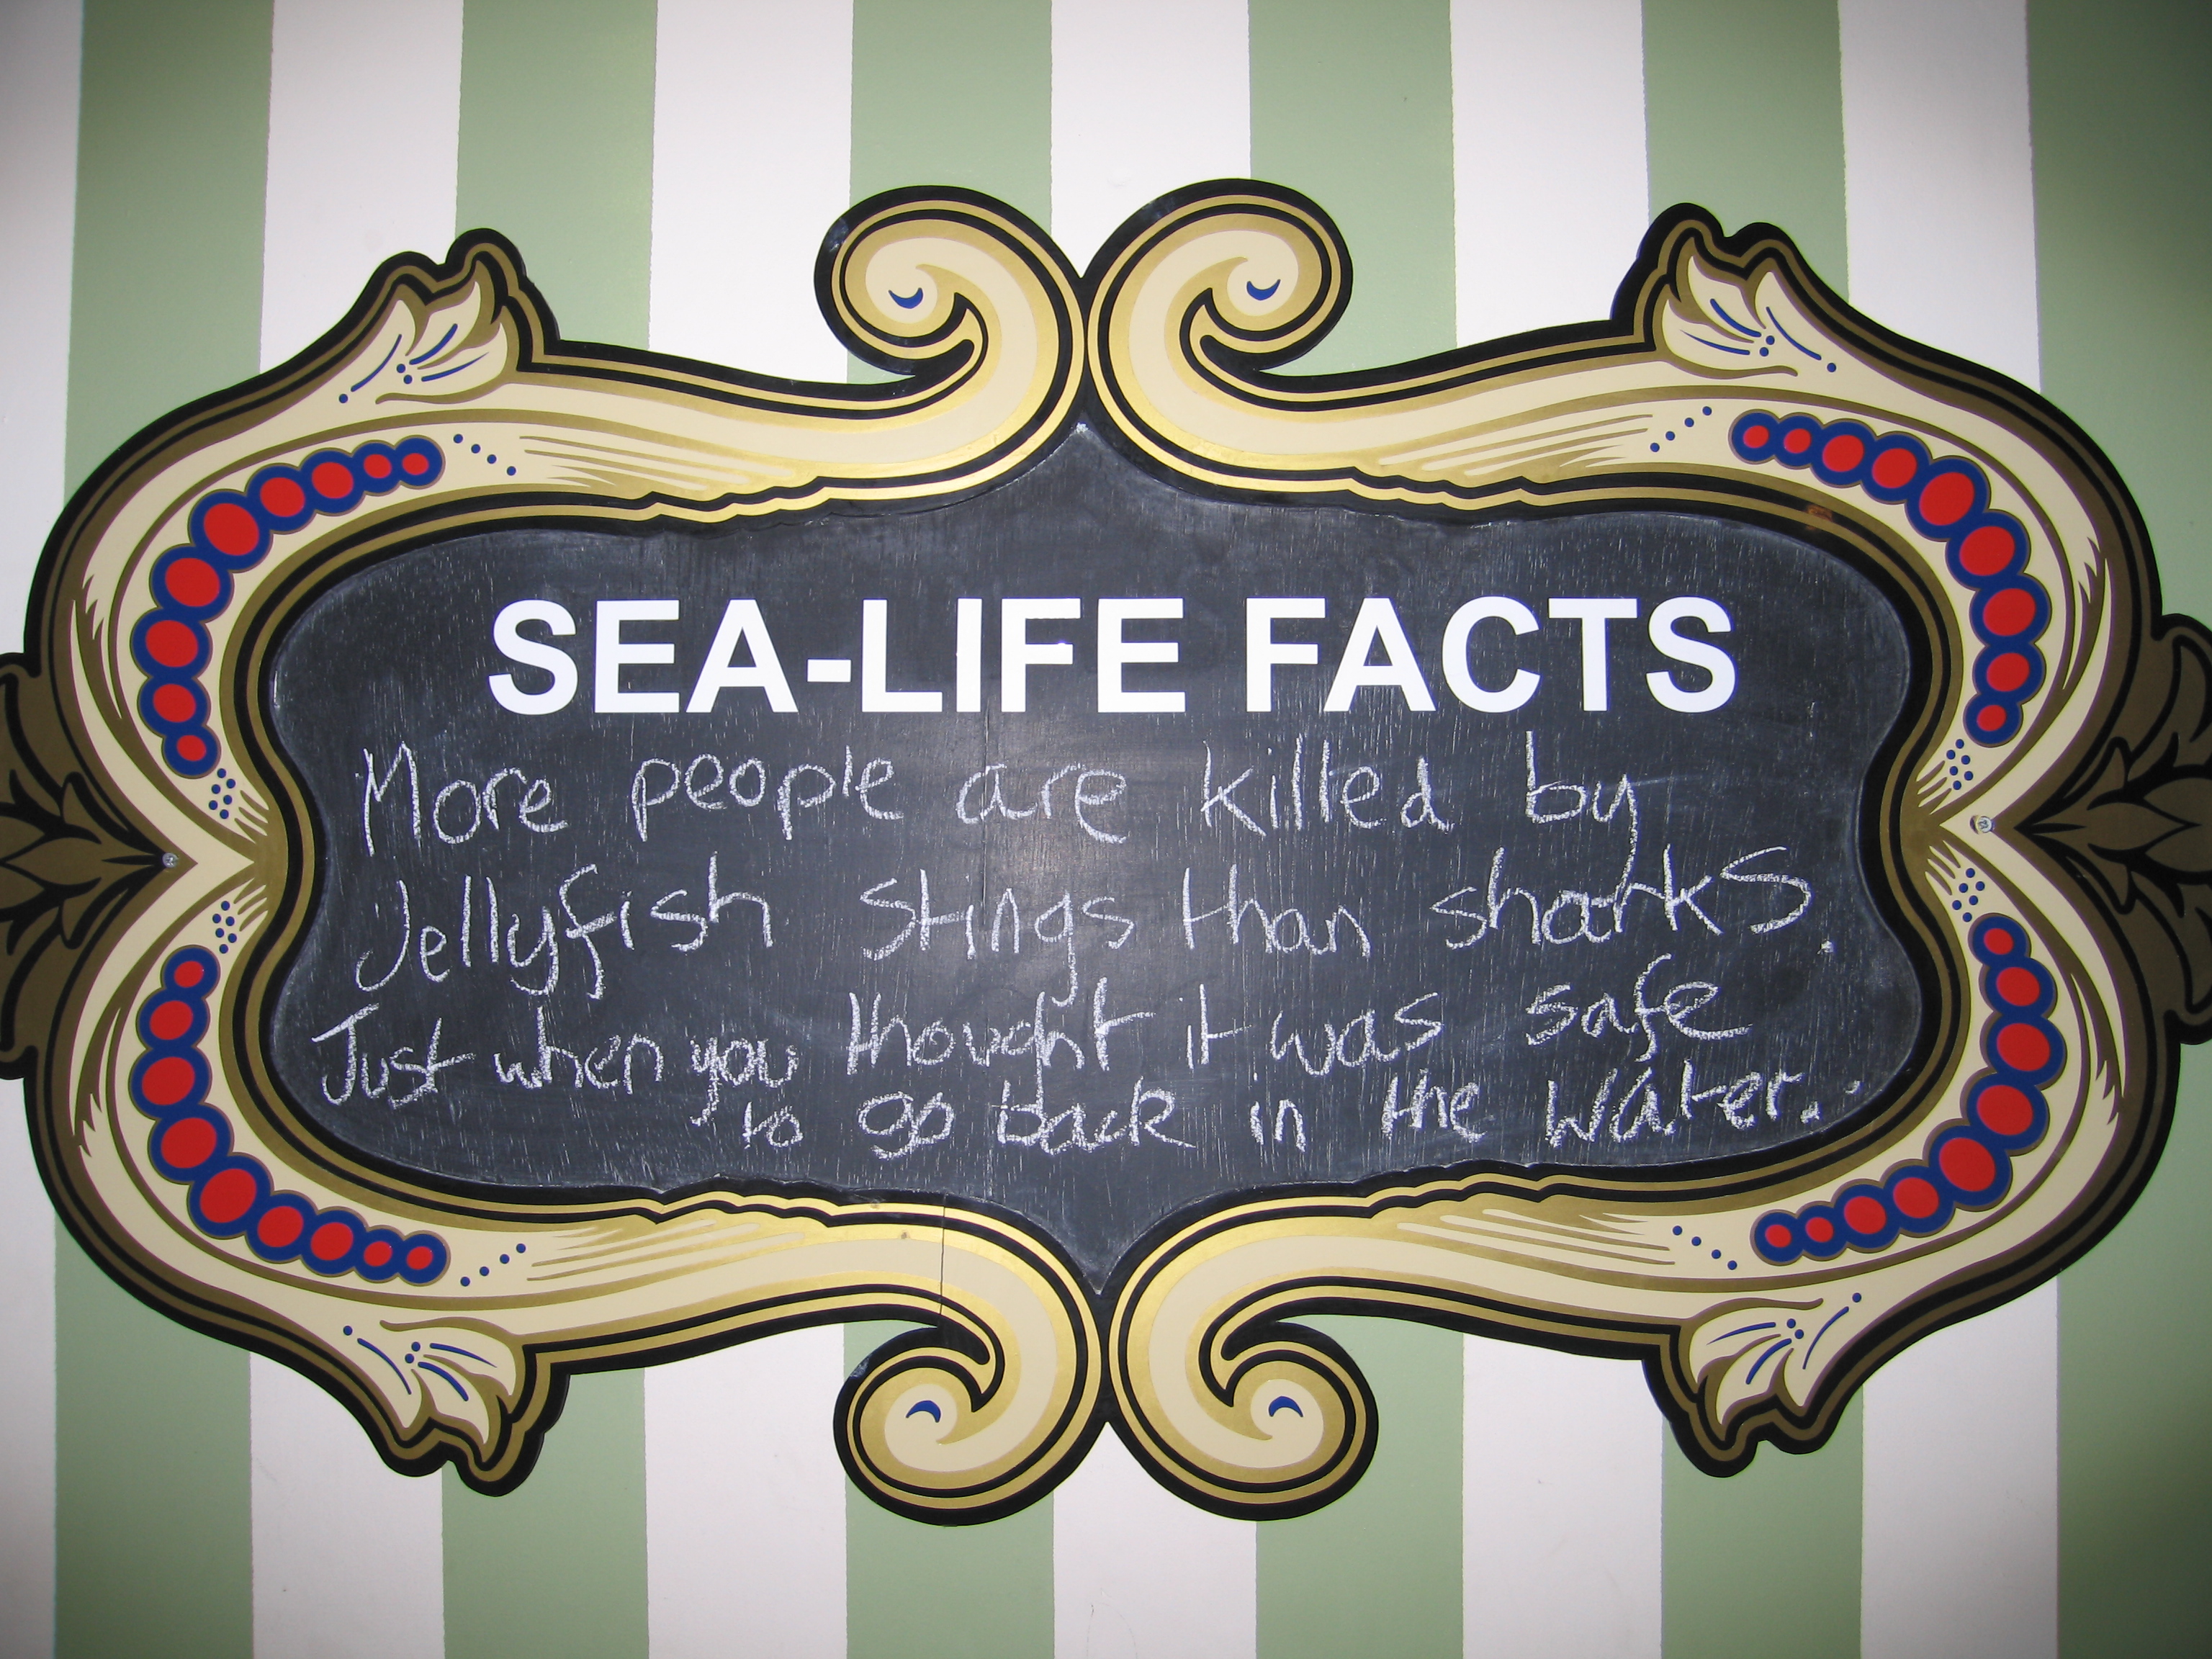 SEA-LIFE FACTS
More people are killed by
Jellyfish stings than sharks.
Just when you thought it was safe
to go back in the water.